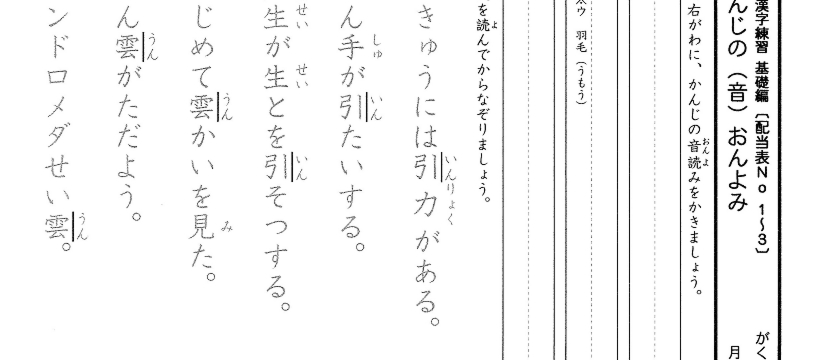 漢字練習 基礎編〔配当表No 1〜3〕 がく
んじの（音）おんよみ 月
右がわに、かんじの音読みをかきましょう。
おんよ
太ウ 羽毛（うもう）
を読んでからなぞりましょう。
よ
きゅうには引力がある。
いんりょく
ん手が引たいする。
しゅ いん
生が生とを引そつする。
せい せい いん
じめて雲かいを見た。
うん み
ん雲がただよう。
うん
ンドロメダせい雲。
うん